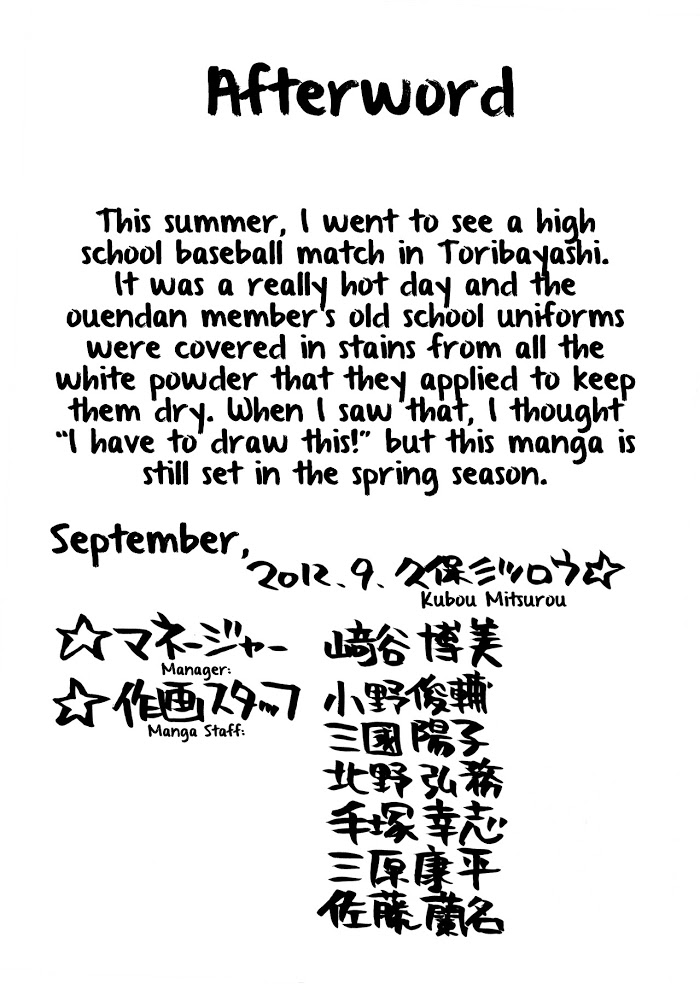 Afterword
This summer, I went to see a high
school baseball match in Toribayashi.
It was a really hot day and the
ouendan member's old school uniforms
were covered in stains from all the
white powder that they applied to keep
them dry. When I saw that, I thought
"I have to draw this!" but this manga is
still set in the spring season.
September,
2012.9.久保ミツロウ☆
Kubou Mitsurou
☆マネージャー 﨑谷 博美
Manager:
☆作画スタッフ 小野俊輔
Manga Staff:
三國 陽子
北野 弘務
手塚 幸志
三原康平
佐藤 蘭名